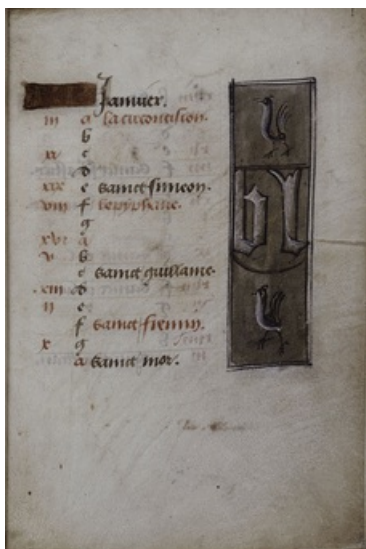 Januier.
iii a la circoncision.
b
xi c
d
xix e sainct simeon.
viii f lepyphane.
g
xvi a
v b
c sainct guillame.
xiii d
ii e
f sainct fremin.
x g
a sainct mor.